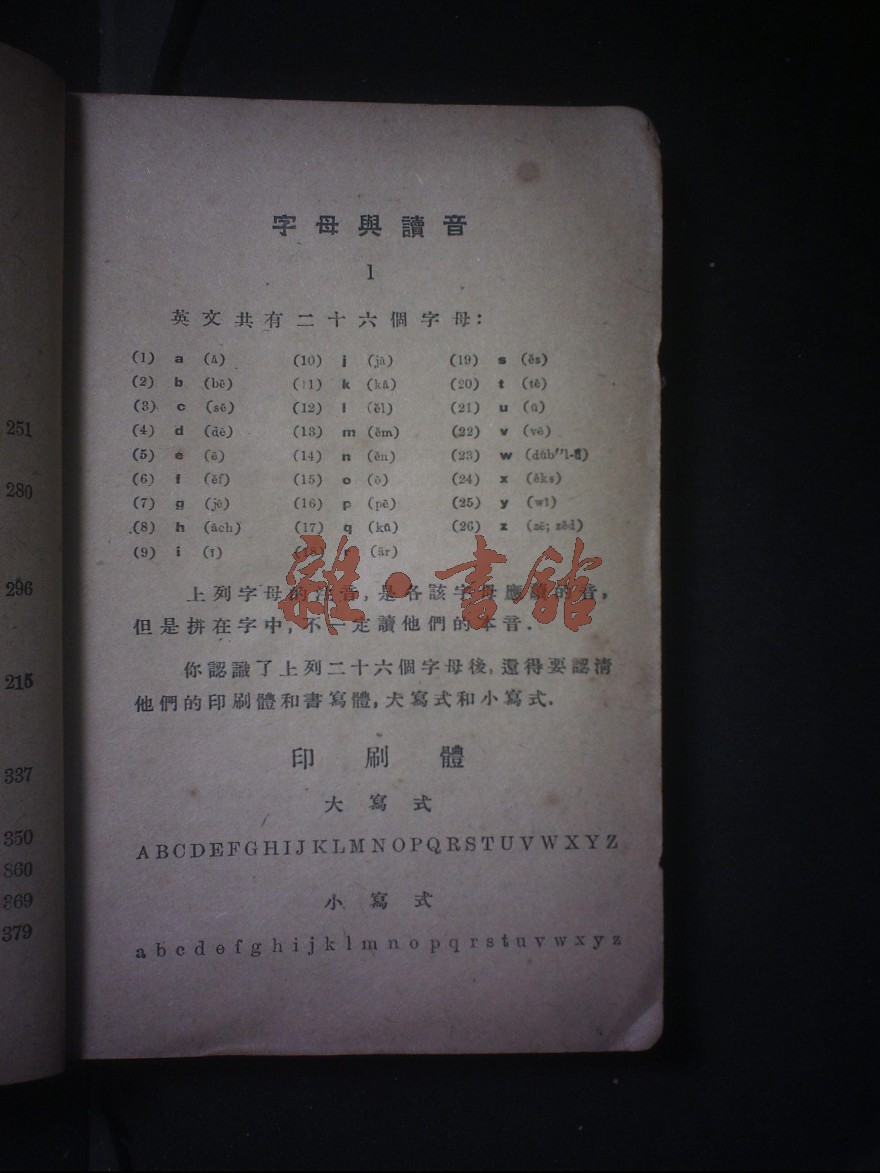 251
280
296
215
337
350
360
369
379
字母與讀音
1
英文共有二十六個字母：
(1) a (ā) (10) j (jā) (19) s (ĕs)
(2) b (bē) (11) k (kā) (20) t (tē)
(3) c (sē) (12) l (ĕl) (21) u (ū)
(4) d (dē) (13) m (ĕm) (22) v (vē)
(5) e (ē) (14) n (ĕn) (23) w
(6) f (ĕf) (15) o (ō) (24) x (ĕks)
(7) g (jē) (16) p (pē) (25) y (wī)
(8) h (āch) (17) q (kū) (26) z (zē; zĕd)
(9) i (ī) (18) r (är)
上列字母的注音，是各該字母應讀的音，
但是拼在字中，不一定讀他們的本音．
你認識了上列二十六個字母後，還得要認清
他們的印刷體和書寫體，大寫式和小寫式．
印刷體
大寫式
A B C D E F G H I J K L M N O P Q R S T U V W X Y Z
小寫式
a b c d e f g h i j k l m n o p q r s t u v w x y z
雜·書館